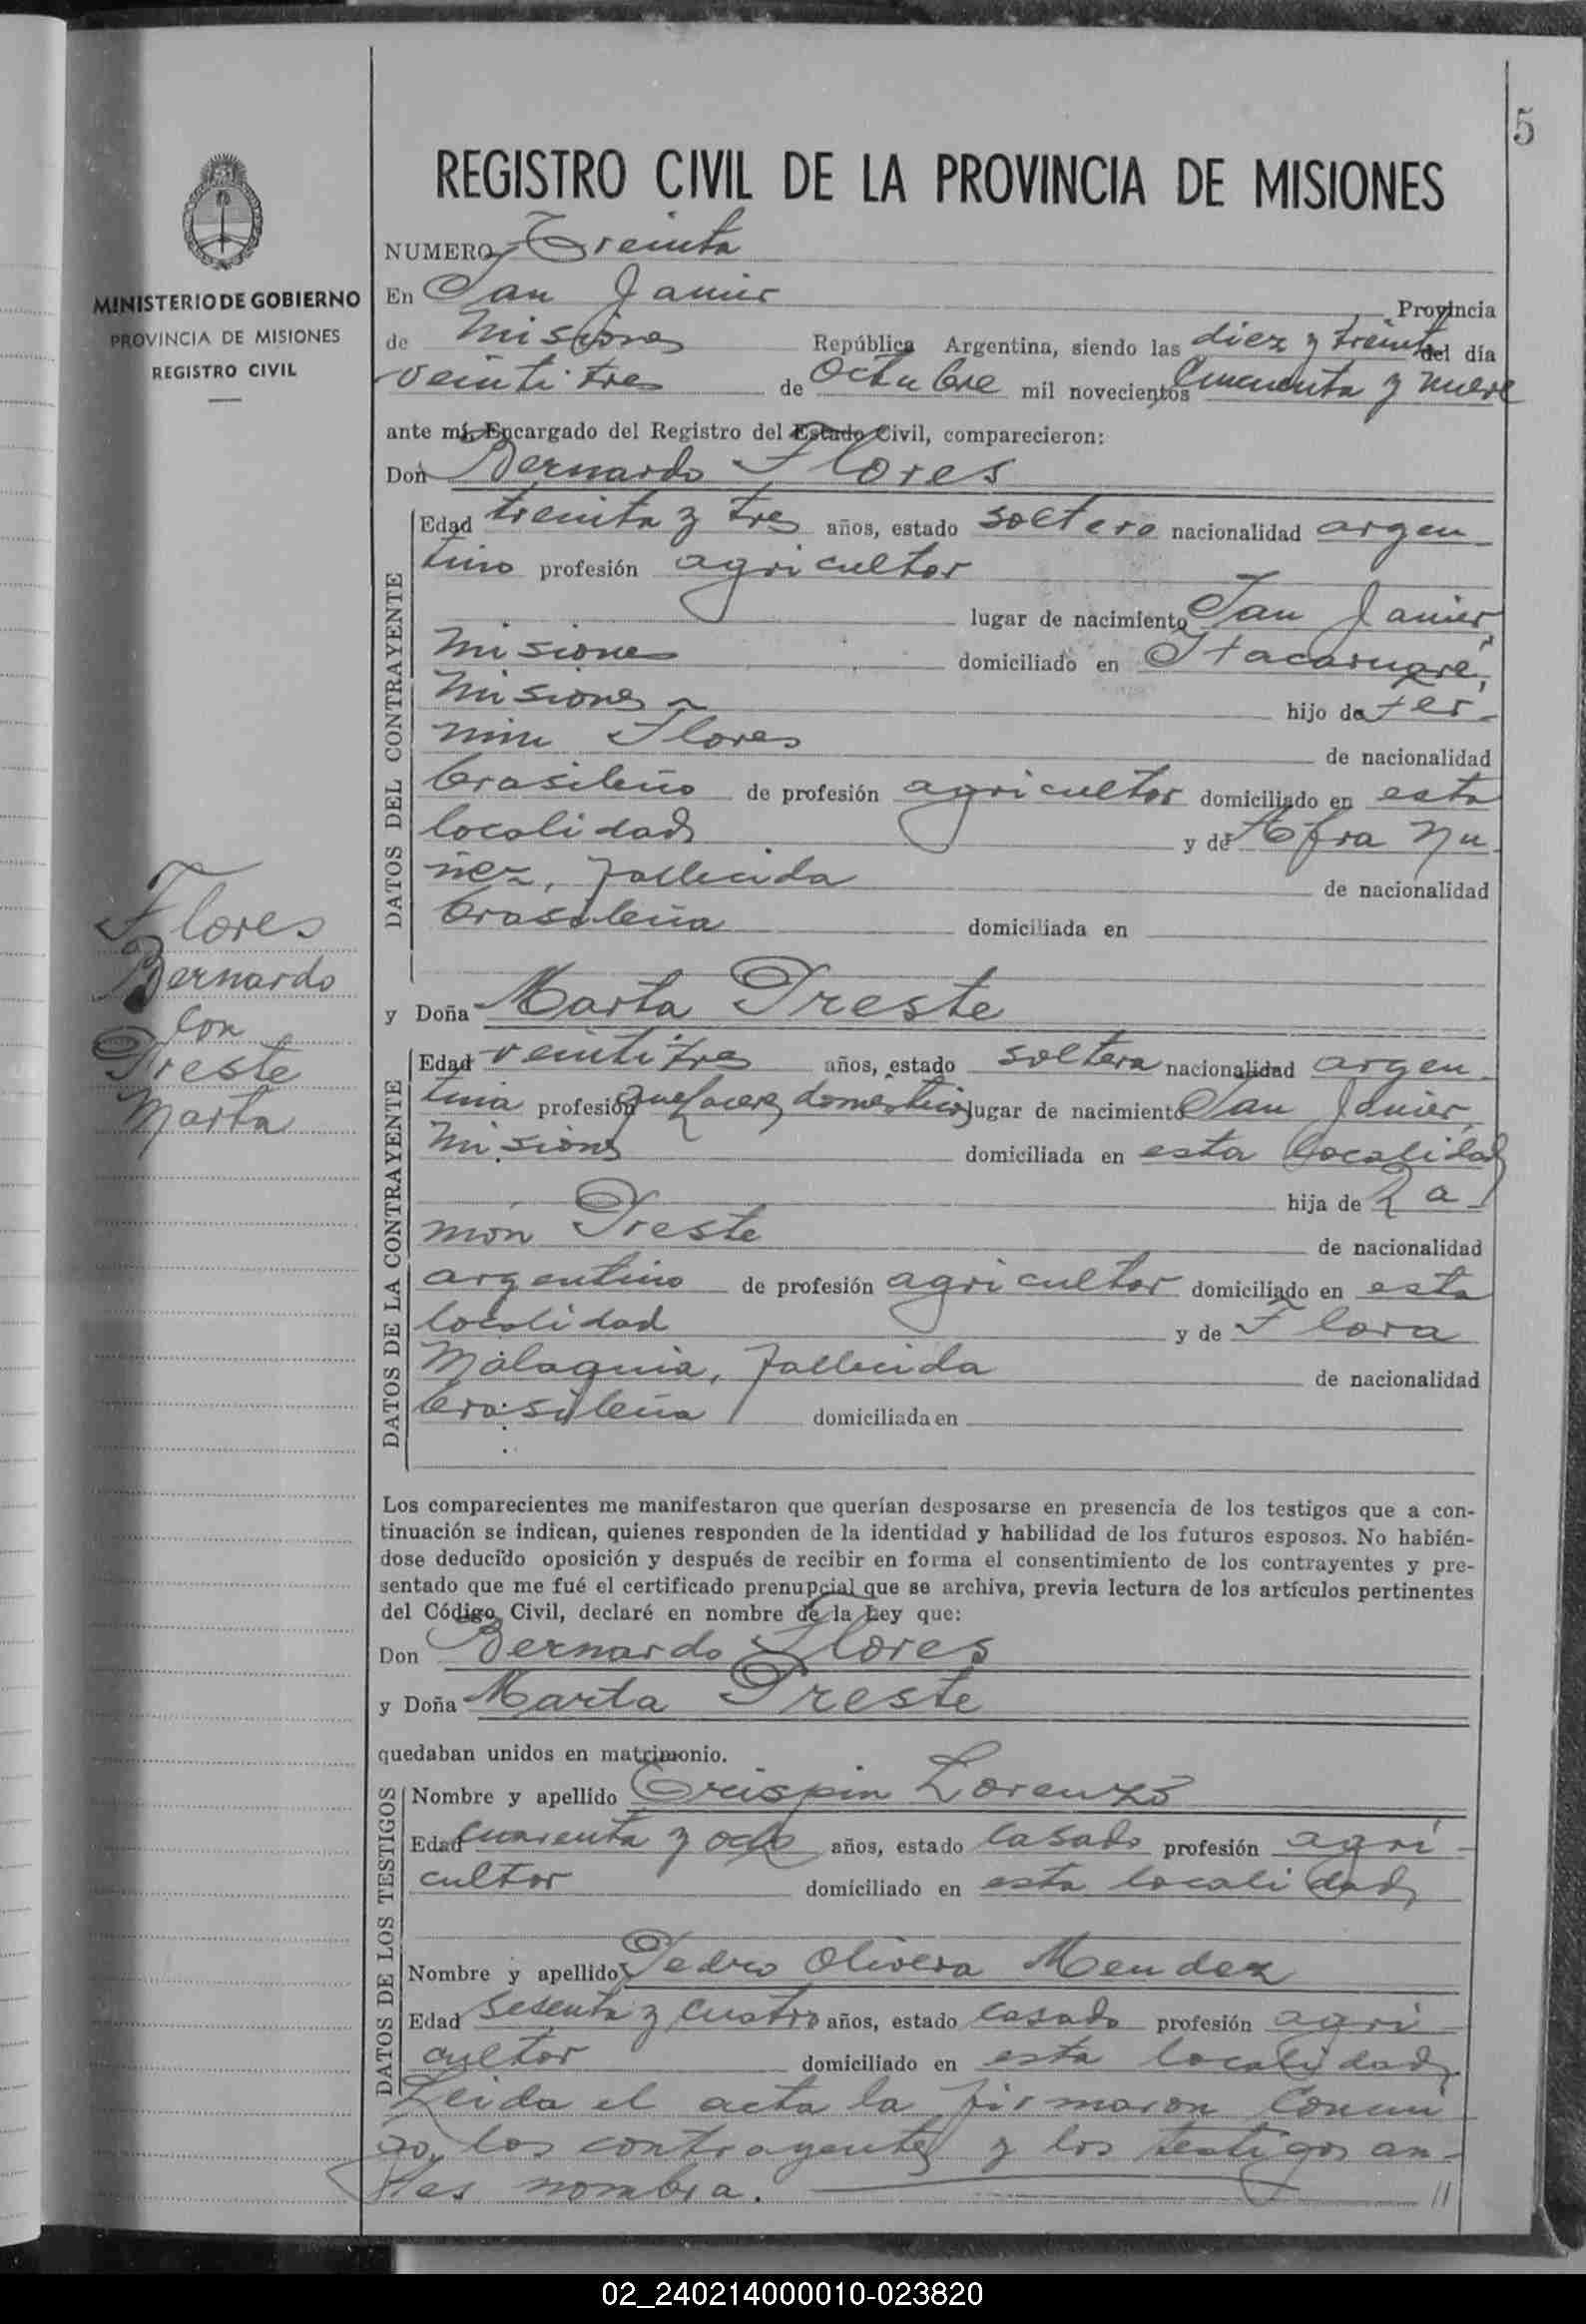 5
REGISTRO CIVIL DE LA PROVINCIA DE MISIONES
MINISTERIO DE GOBIERNO
PROVINCIA DE MISIONES
REGISTRO CIVIL
Flores
Bernardo
con
Preste
Marta
NUMERO Treinta
En San Javier Provincia
de Misiones República Argentina, siendo las diez y treinta del día
veintitres de Octubre mil novecientos cincuenta y nueve
ante mí, Encargado del Registro del Estado Civil, comparecieron:
Don Bernardo Flores
DATOS DEL CONTRAYENTE
Edad treinta y tres años, estado soltero nacionalidad argen-
tino profesión agricultor
lugar de nacimiento San Javier,
Misiones domiciliado en Itacaruaré,
Misiones hijo de Fer-
min Flores de nacionalidad
brasileño de profesión agricultor domiciliado en esta
localidad y de Afra Nu-
ñez, fallecida de nacionalidad
brasileña domiciliada en
y Doña Marta Preste
DATOS DE LA CONTRAYENTE
Edad veintitres años, estado soltera nacionalidad argen-
tina profesión quehaceres domésticos lugar de nacimiento San Javier,
Misiones domiciliada en esta localidad
hija de Ra-
món Preste de nacionalidad
argentino de profesión agricultor domiciliado en esta
localidad y de Flora
Malaquia, fallecida de nacionalidad
brasileña domiciliada en
Los comparecientes me manifestaron que querían desposarse en presencia de los testigos que a con-
tinuación se indican, quienes responden de la identidad y habilidad de los futuros esposos. No habién-
dose deducido oposición y después de recibir en forma el consentimiento de los contrayentes y pre-
sentado que me fué el certificado prenupcial que se archiva, previa lectura de los artículos pertinentes
del Código Civil, declaré en nombre de la Ley que:
Don Bernardo Flores
y Doña Marta Preste
quedaban unidos en matrimonio.
DATOS DE LOS TESTIGOS
Nombre y apellido Crispin Lorenzo
Edad cuarenta y ocho años, estado casado profesión agri-
cultor domiciliado en esta localidad
Nombre y apellido Pedro Olivera Mendez
Edad sesenta y cuatro años, estado casado profesión agri-
cultor domiciliado en esta localidad
Leida el acta la firmaron conmi
go, los contrayentes y los testigos an-
tes nombra. //
02_240214000010-023820